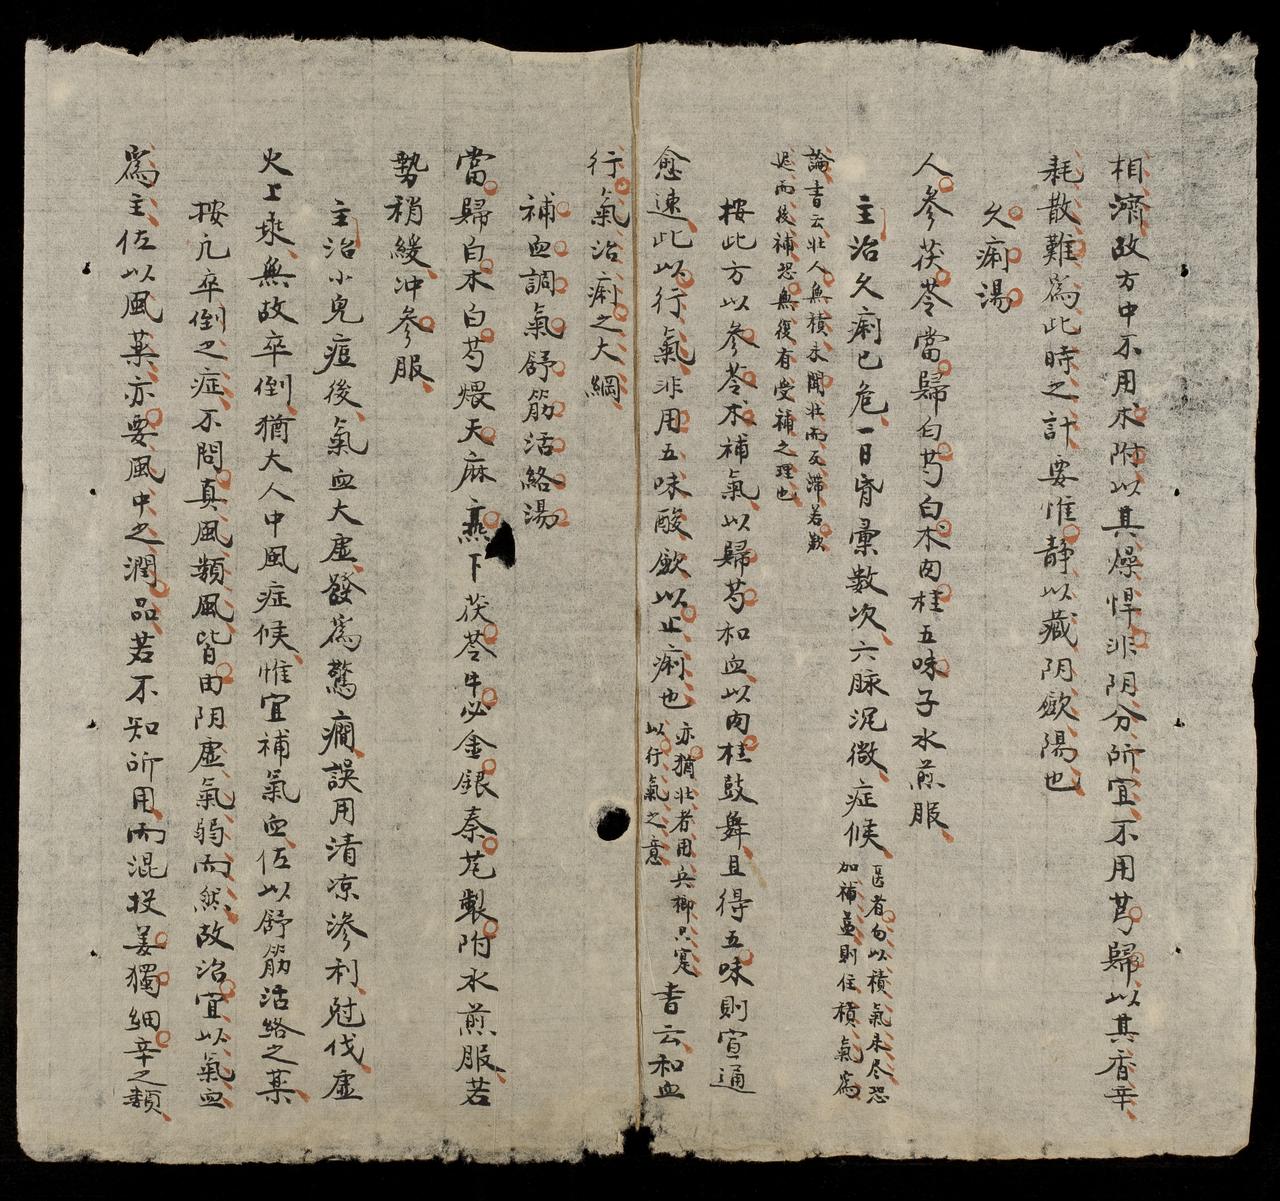 相濟故方中不用朮附以其燥悍非阴分所宜不用芎歸以其香辛
耗散難爲此時之計要惟静以藏阴歛陽也
久痢湯
人參茯苓當歸白芍白朮肉桂五味子水煎服
主治久痢已危一日宵彙數次六脉沉微症候
医者勿以積氣未尽恐
加補益則住積氣爲
論書云壮人無積未聞壮而反滞若歎
迟而後補恐無復有受補之理也
按此方以參苓朮補氣以歸芍和血以肉桂鼓舞且得五味則宣通
愈速此以行氣非用五味酸歛以止痢也
亦猶壮者用兵梛只寔
以行气之意
書云和血
行氣治痢之大綱
補血調氣舒筋活絡湯
當歸白朮白芍煨天麻燕下茯苓牛必金銀秦艽製附水煎服若
勢稍緩冲參服
主治小兒痘後氣血大虛發爲驚癇誤用清凉滲利尅伐虛
火上乘無故卒倒猶大人中風症候惟宜補氣血佐以舒筋活絡之葯
按凢卒倒之症不問真風類風皆由阴虛氣弱而然故治宜以氣血
爲主佐以風葯亦要風中之潤品若不知所用而混投姜獨細辛之類